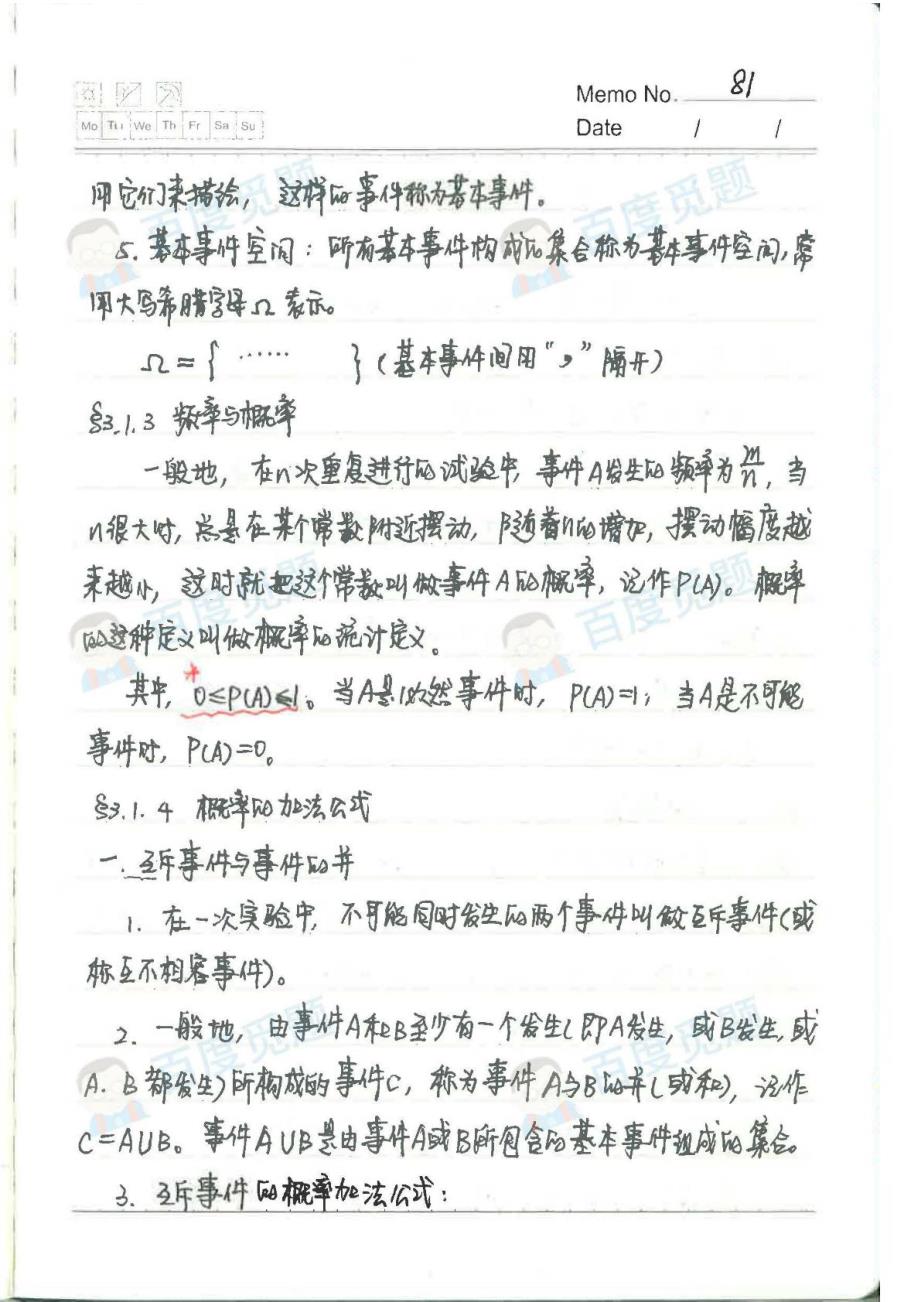 Memo No. 81
Mo Tu We Th Fr Sa Su
Date / /
用它们来描绘，这样的事件称为基本事件。
5. 基本事件空间：所有基本事件构成的集合称为基本事件空间，常
用大写希腊字母Ω表示。
Ω={ …… }（基本事件间用“，”隔开）
§3.1.3 频率与概率
一般地，在n次重复进行的试验中，事件A发生的频率为m/n，当
n很大时，总是在某个常数附近摆动，随着n的增加，摆动幅度越
来越小，这时就把这个常数叫做事件A的概率，记作P(A)。概率
的这种定义叫做概率的统计定义。
其中，0≤P(A)≤1。当A是必然事件时，P(A)=1；当A是不可能
事件时，P(A)=0。
§3.1.4 概率的加法公式
一.互斥事件与事件的并
1. 在一次实验中，不可能同时发生的两个事件叫做互斥事件（或
称互不相容事件）。
2. 一般地，由事件A和B至少有一个发生（即A发生，或B发生，或
A.B都发生）所构成的事件C，称为事件A与B的并（或和），记作
C=A∪B。事件A∪B是由事件A或B所包含的基本事件组成的集合。
3. 互斥事件的概率加法公式：
百度觅题
百度觅题
百度觅题
百度觅题
百度觅题
百度觅题